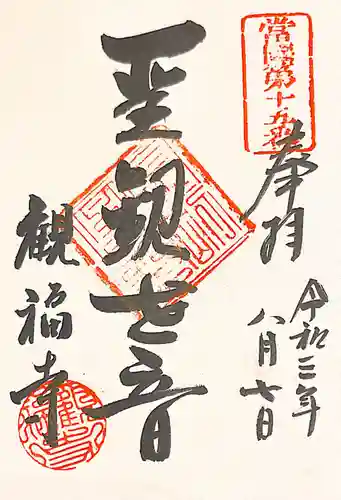 常陸第十五番
奉拝
令和三年
八月七日
聖観世音
観福寺